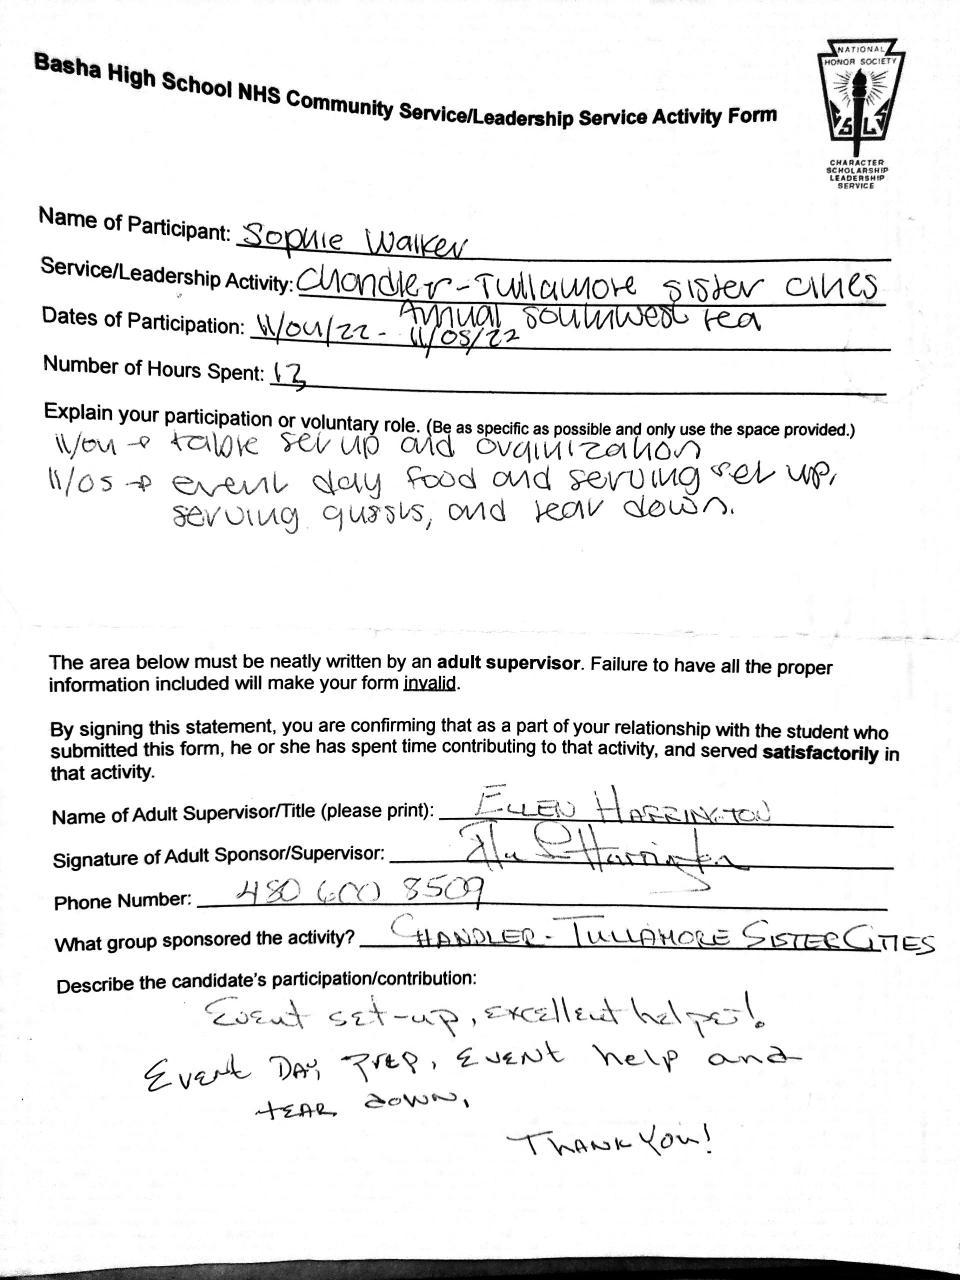 Basha High School NHS Community Service/Leadership Service Activity Form
NATIONAL
HONOR SOCIETY
CHARACTER
SCHOLARSHIP
LEADERSHIP
SERVICE
Name of Participant: Sophie Walker
Service/Leadership Activity: Chandler-Tullamore sister cities
Annual southwest tea
Dates of Participation: 11/04/22 - 11/05/22
Number of Hours Spent: 13
Explain your participation or voluntary role. (Be as specific as possible and only use the space provided.)
11/04 → table set up and organization
11/05 → event day food and serving set up,
serving guests, and tear down.
The area below must be neatly written by an adult supervisor. Failure to have all the proper
information included will make your form invalid.
By signing this statement, you are confirming that as a part of your relationship with the student who
submitted this form, he or she has spent time contributing to that activity, and served satisfactorily in
that activity.
Name of Adult Supervisor/Title (please print): ELLEN HARRINGTON
Signature of Adult Sponsor/Supervisor: Harrington
Phone Number: 480 600 8509
What group sponsored the activity? CHANDLER-TULLAMORE SISTER CITIES
Describe the candidate's participation/contribution:
Event set-up, excellent helper!
Event Day Prep, Event help and
tear down.
Thank You!